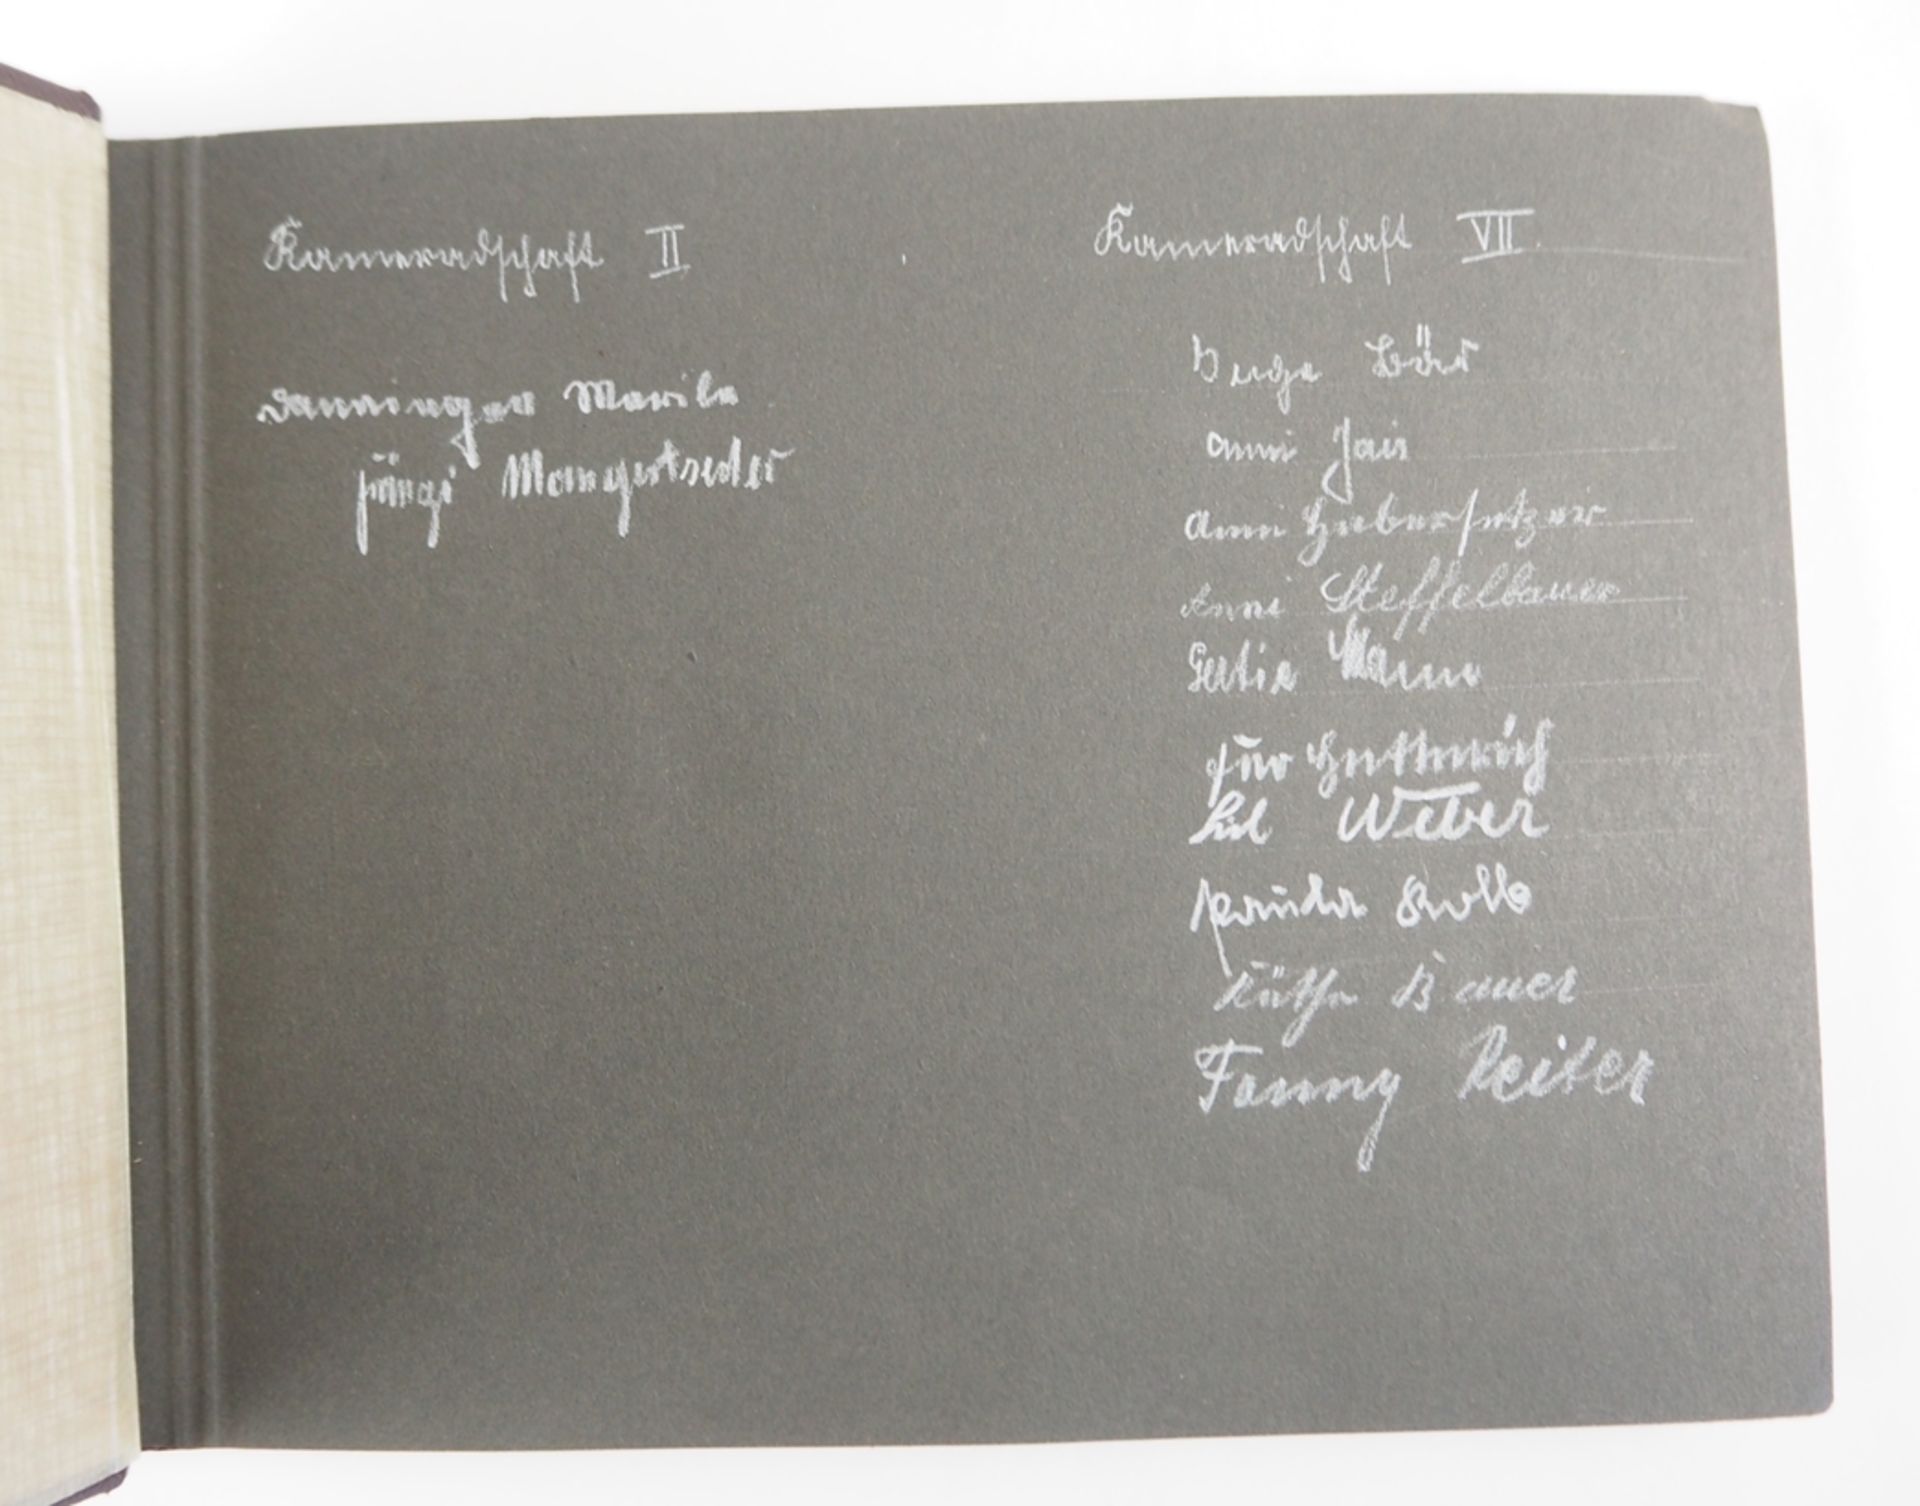 Kameradschaft II
Danninger Marile
Mangertseder
Kameradschaft VII.
Inge Bär
Anni Jais
Anni Hubersetzer
Anni Steffelbauer
Gertie Mann
Weber
Kolb
Käthe Bauer
Fanny Reiter